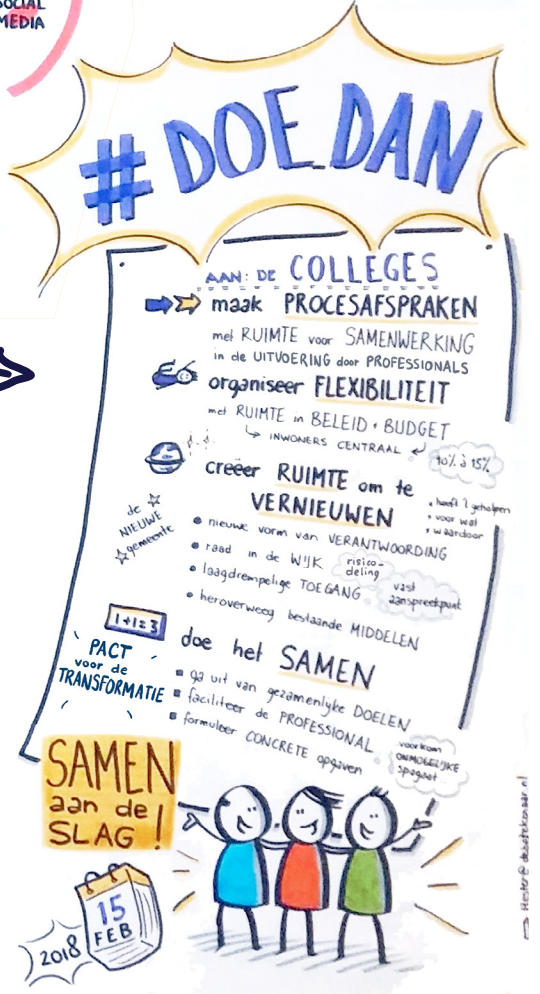 SOCIAL
MEDIA
#DOE DAN
AAN: DE COLLEGES
maak PROCESAFSPRAKEN
met RUIMTE voor SAMENWERKING
in de UITVOERING door PROFESSIONALS
organiseer FLEXIBILITEIT
met RUIMTE in BELEID + BUDGET
INWONERS CENTRAAL
10% à 15%
creëer RUIMTE om te
VERNIEUWEN
• heeft 't geholpen
• voor wat
• waardoor
de
NIEUWE
gemeente
• nieuwe vorm van VERANTWOORDING
• raad in de WIJK
risico-
deling
• laagdrempelige TOEGANG
vast
aanspreekpunt
• heroverweeg bestaande MIDDELEN
1+1=3
doe het SAMEN
PACT
voor de
TRANSFORMATIE
▪ ga uit van gezamenlijke DOELEN
▪ faciliteer de PROFESSIONAL
▪ formuleer CONCRETE opgaven
voorkom
ONMOGELIJKE
spagaat
SAMEN
aan de
SLAG!
15
FEB
2018